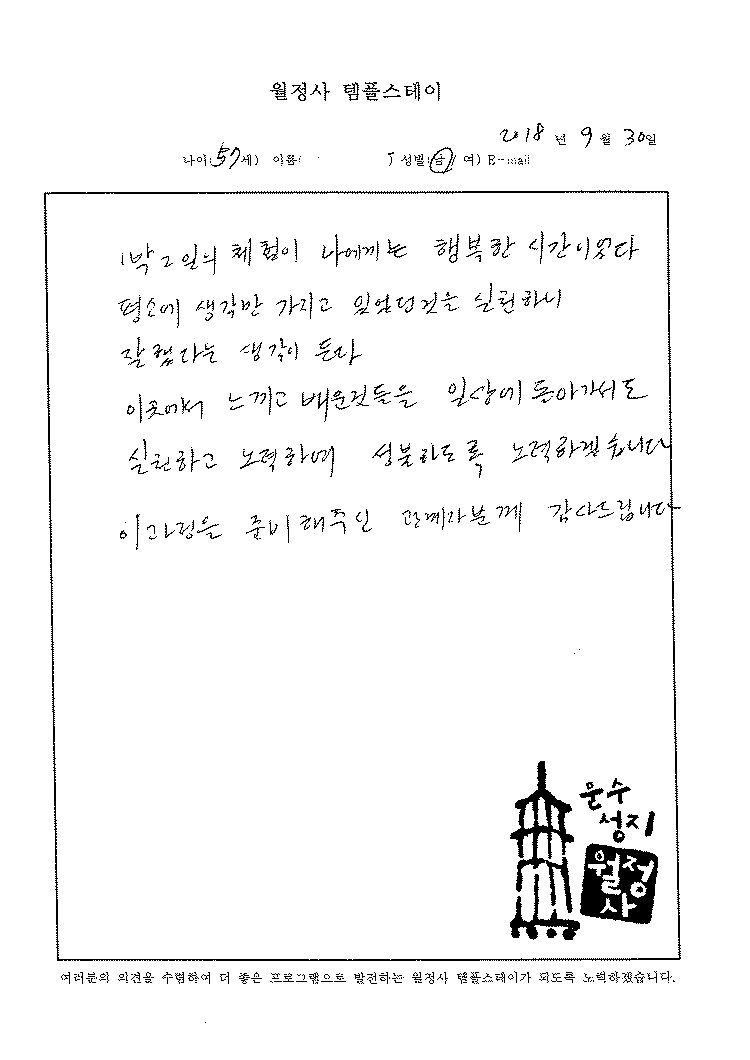 월정사 템플스테이
2018 년 9 월 30일
나이(57세) 이름( ) 성별(남/ 여) E-mail
1박2일의 체험이 나에께는 행복한 시간이였다
평소에 생각만 가지고 있었던것을 실천하니
잘했다는 생각이 든다
이곳에서 느끼고 배운것들을 일상에 돌아가서도
실천하고 노력하여 성불하도록 노력하겠습니다
이과정을 준비해주신 관계자분께 감사드립니다
문수
성지
월정
사
여러분의 의견을 수렴하여 더 좋은 프로그램으로 발전하는 월정사 템플스테이가 되도록 노력하겠습니다.